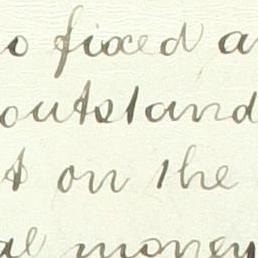 o fixed a
outstand
t on the
al money